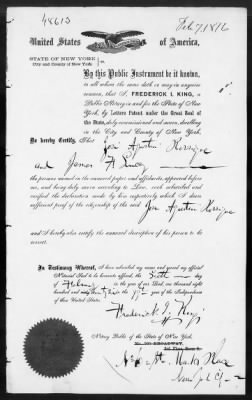 48613
Feb 7, 1876
United States of America,
STATE OF NEW YORK
City and County of New York
By this Public Instrument be it known,
to all whom the same doth or may in anywise
concern, that I, FREDERICK I. KING, a
Public Notary in and for the State of New
York, by Letters Patent under the Great Seal of
the State, duly commissioned and sworn, dwelling
in the City and County of New York,
Do hereby Certify, That
José Agustin
and James
the persons named in the annexed paper and affidavits, appeared before
me, and being duly sworn according to Law, each subscribed and
verified the declaration made by him respectively which I deem
sufficient proof of the citizenship of the said José Agustin
and I do hereby also certify the annexed description of his person to be
correct.
In Testimony Whereof, I have subscribed my name and caused my official
Notarial Seal to be hereunto affixed, the day
of in the year of our Lord, one thousand eight
hundred and of the Independence
of these United States.
Frederick I. King
Notary Public of the State of New York.
BROADWAY,
St. Marks Place